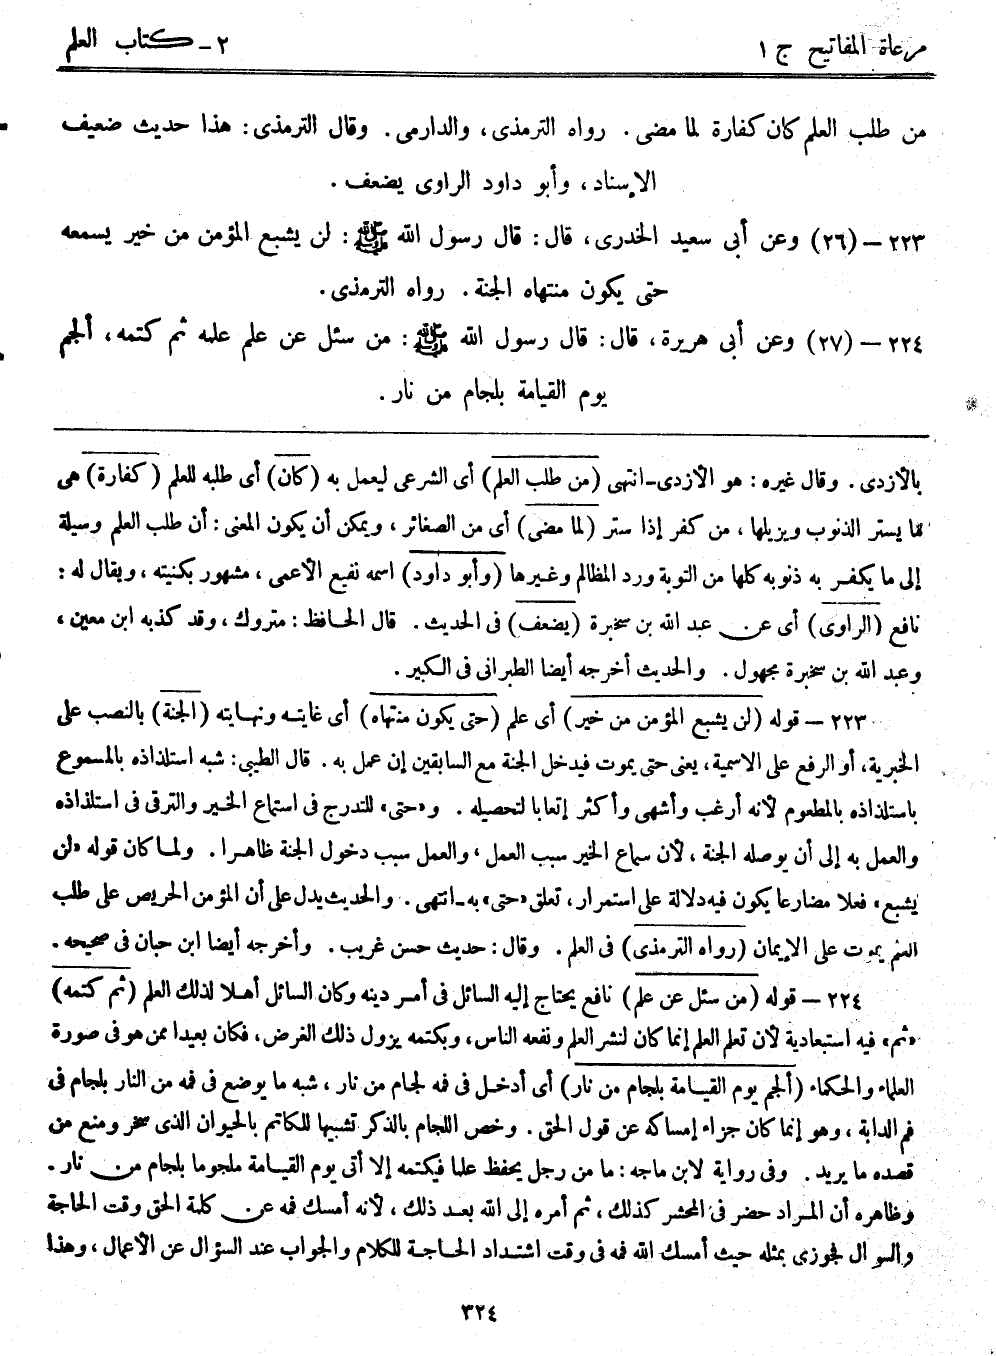 مرعاة المفاتيح ج ١
٢ - كتاب العلم
من طلب العلم كان كفارة لما مضى . رواه الترمذى، والدارمى . وقال الترمذى : هذا حديث ضعيف
الإسناد، وأبو داود الراوى يضعف .
٢٢٣ – (٢٦) وعن أبى سعيد الخدرى، قال : قال رسول الله ﷺ : لن يشبع المؤمن من خير يسمعه
حتى يكون منتهاه الجنة . رواه الترمذى .
٢٢٤ – (٢٧) وعن أبى هريرة، قال : قال رسول الله ﷺ : من سئل عن علم علمه ثم كتمه، ألجم
يوم القيامة بلجام من نار .
بالأزدى . وقال غيره : هو الأزدى-انتهى (من طلب العلم) أى الشرعى ليعمل به (كان) أى طلبه للعلم (كفارة) هى
ما يستر الذنوب ويزيلها ، من كفر إذا ستر (لما مضى) أى من الصغائر ، ويمكن أن يكون المعنى : أن طلب العلم وسيلة
إلى ما يكفر به ذنوبه كلها من التوبة ورد المظالم وغيرها (وأبو داود) اسمه نفيع الأعمى ، مشهور بكنيته ، ويقال له :
نافع (الراوى) أى عن عبد الله بن سخبرة (يضعف) فى الحديث . قال الحافظ : متروك ، وقد كذبه ابن معين ،
وعبد الله بن سخبرة مجهول . والحديث أخرجه أيضا الطبرانى فى الكبير .
٢٢٣ – قوله (لن يشبع المؤمن من خير) أى علم (حتى يكون منتهاه) أى غايته ونهايته (الجنة) بالنصب على
الخبرية، أو الرفع على الاسمية، يعنى حتى يموت فيدخل الجنة مع السابقين إن عمل به . قال الطيبى : شبه استلذاذه بالمسموع
باستلذاذه بالمطعوم لأنه أرغب وأشهى وأكثر إتعابا لتحصيله . و«حتى» للتدرج فى استماع الخير والترقى فى استلذاذه
والعمل به إلى أن يوصله الجنة ، لأن سماع الخير سبب العمل ، والعمل سبب دخول الجنة ظاهرا . ولما كان قوله «لن
يشبع» فعلا مضارعا يكون فيه دلالة على استمرار، تعلق «حتى» به-انتهى . والحديث يدل على أن المؤمن الحريص على طلب
العلم يموت على الإيمان (رواه الترمذى) فى العلم . وقال : حديث حسن غريب . وأخرجه أيضا ابن حبان فى صحيحه .
٢٢٤ – قوله (من سئل عن علم) نافع يحتاج إليه السائل فى أمر دينه وكان السائل أهلا لذلك العلم (ثم كتمه)
«ثم» فيه استبعادية لأن تعلم العلم إنما كان لنشر العلم ونفعه الناس، وبكتمه يزول ذلك الغرض، فكان بعيدا ممن هو فى صورة
العلماء والحكماء (ألجم يوم القيامة بلجام من نار) أى أدخل فى فه لجام من نار ، شبه ما يوضع فى فه من النار بلجام فى
فم الدابة ، وهو إنما كان جزاء إمساكه عن قول الحق . وخص اللجام بالذكر تشبيها للكاتم بالحيوان الذى سخر ومنع من
قصده ما يريد . وفى رواية لابن ماجه : ما من رجل يحفظ علما فيكتمه إلا أتى يوم القيامة ملجوما بلجام من نار .
وظاهره أن المراد حضر فى المحشر كذلك ، ثم أمره إلى الله بعد ذلك ، لأنه أمسك فه عن كلمة الحق وقت الحاجة
والسوال فجوزى بمثله حيث أمسك الله فه فى وقت اشتداد الحاجة للكلام والجواب عند السؤال عن الأعمال ، وهذا
٣٢٤